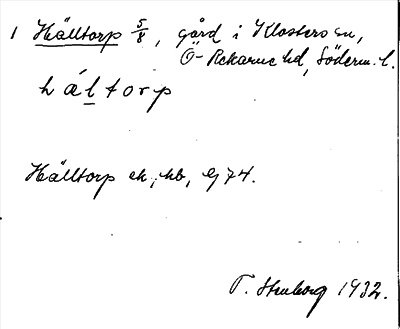 1 Hälltorp 5/8, gård i Klosters sn,
Ö-Rekarne hd, Söderm. l.
háltorp
Hälltorp ek, hb, Gj 74.
1932.